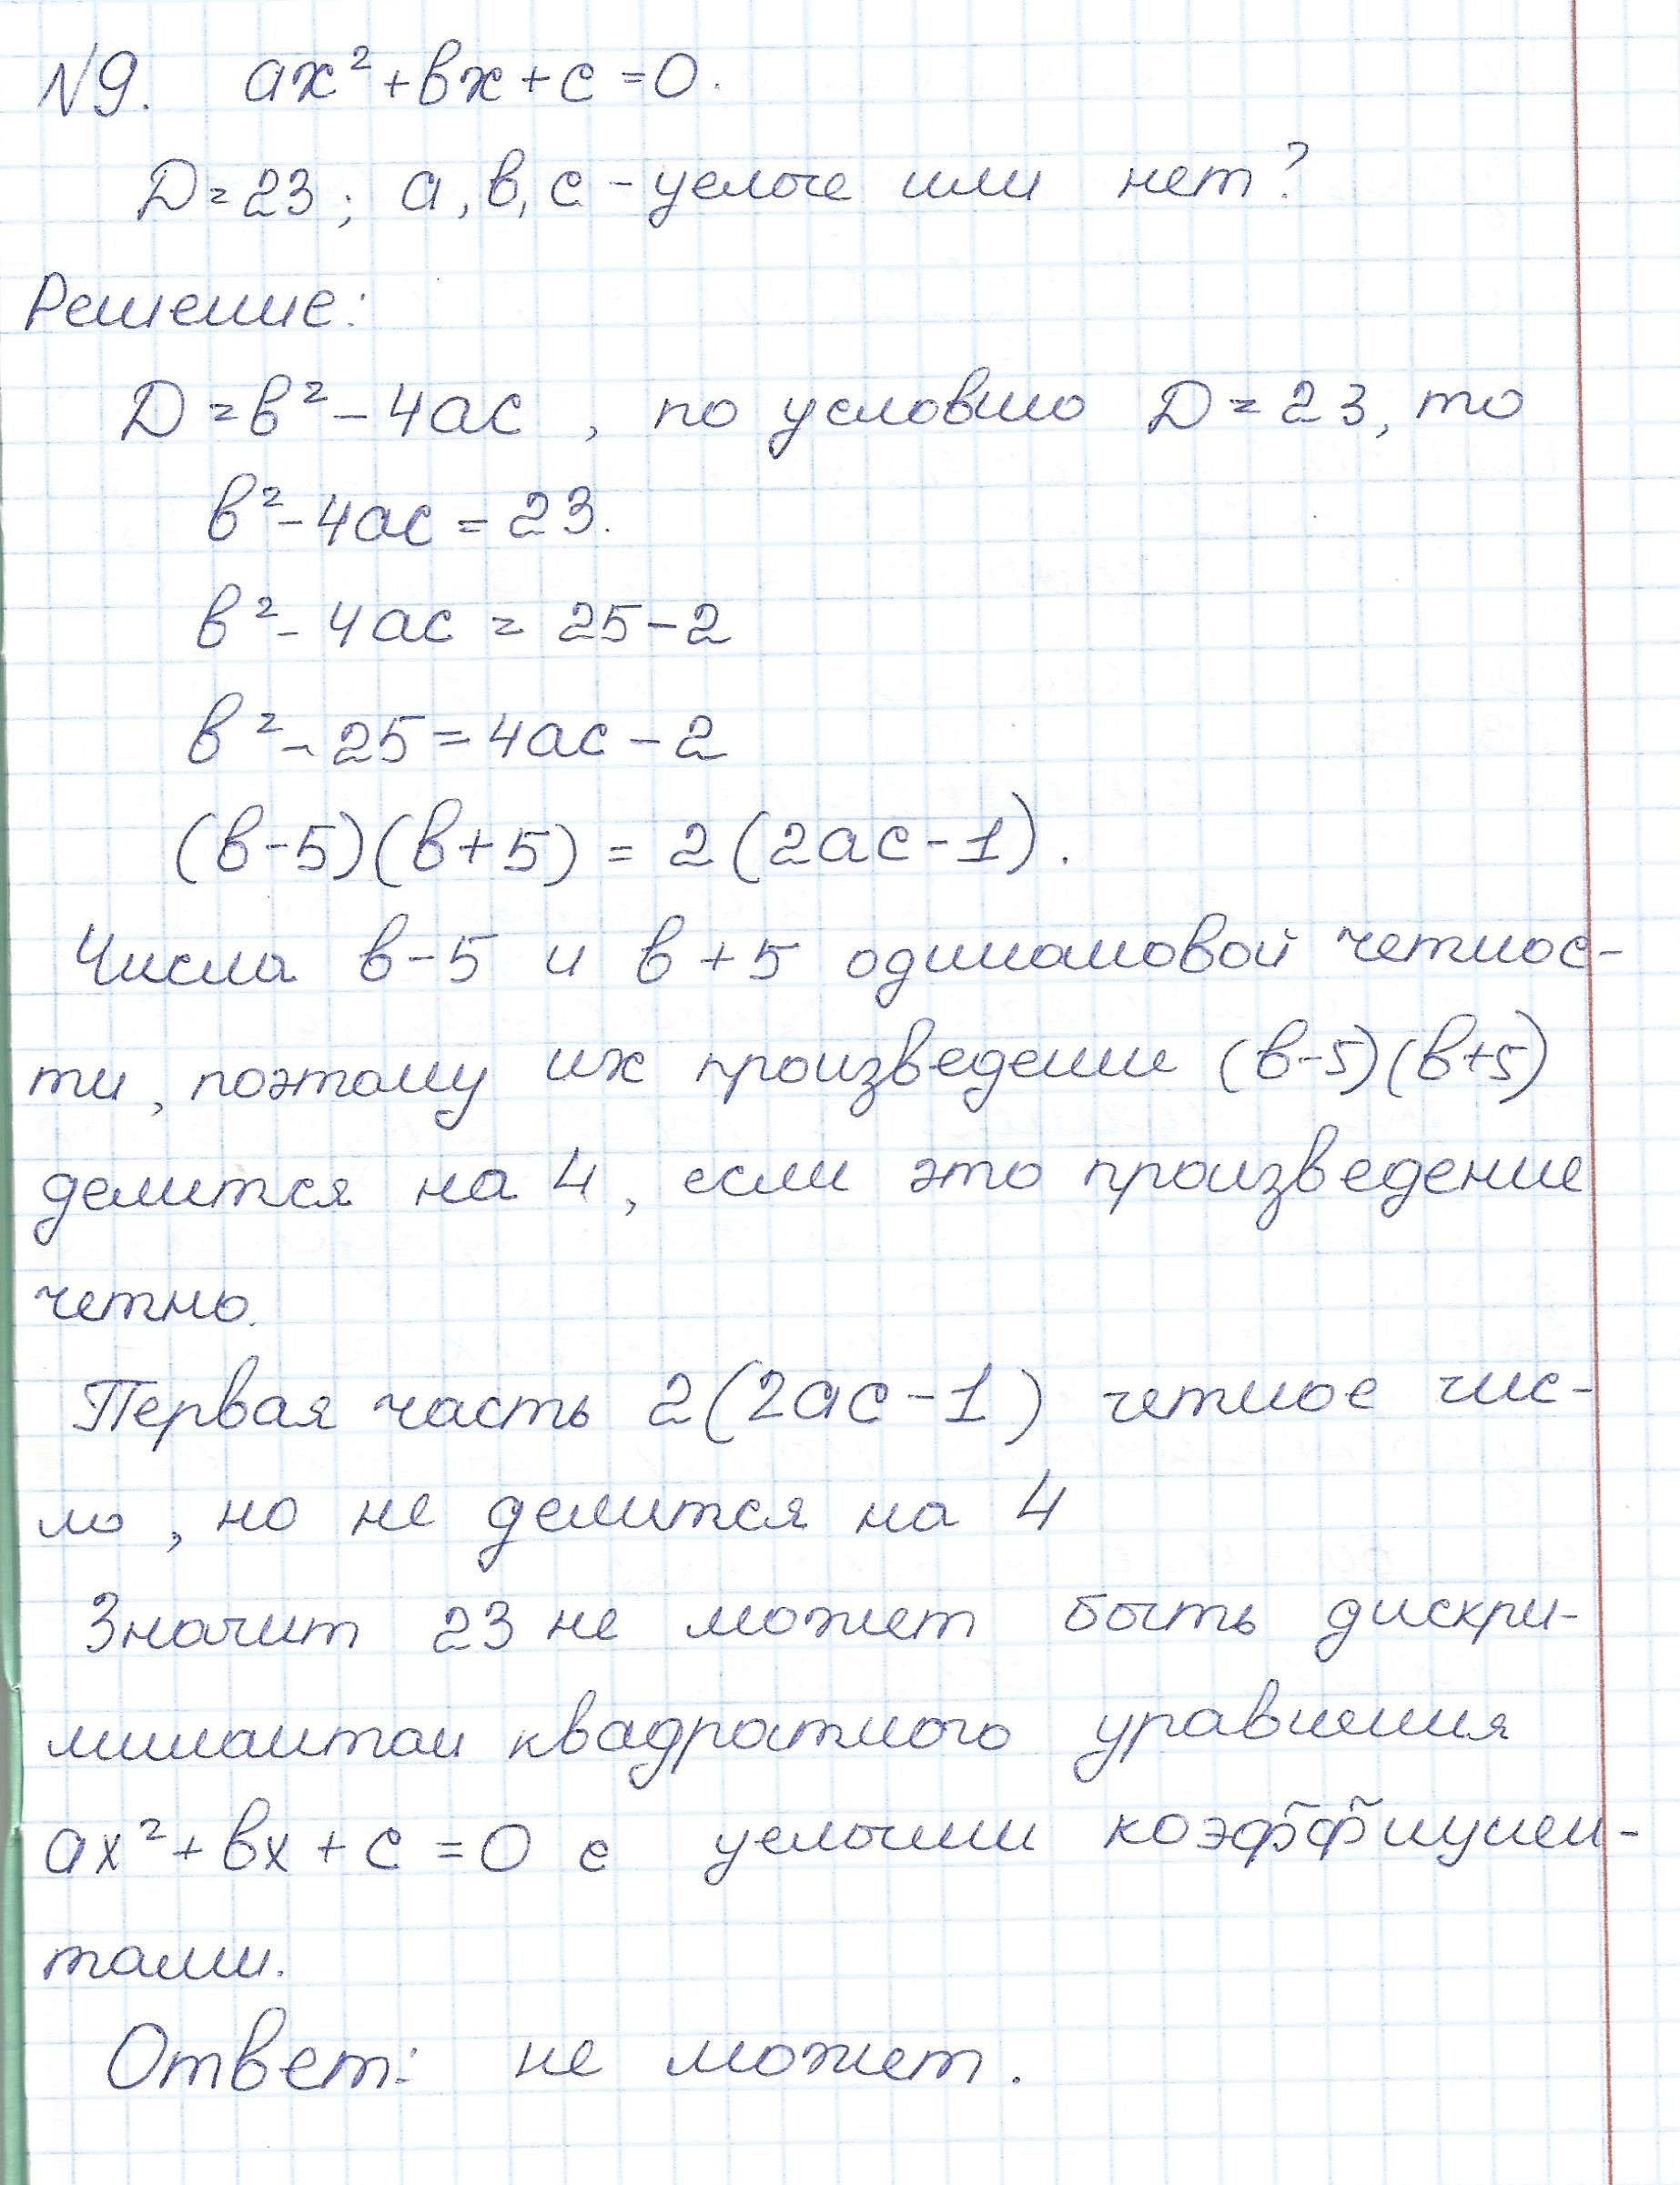 №9. ax² + bx + c = 0.
D = 23; a, b, c - целые или нет?
Решение:
D = b² - 4ac, по условию D = 23, то
b² - 4ac = 23.
b² - 4ac = 25 - 2
b² - 25 = 4ac - 2
(b-5)(b+5) = 2(2ac-1).
Числа b-5 и b+5 одинаковой четнос-
ти, поэтому их произведении (b-5)(b+5)
делится на 4, если это произведение
четно.
Первая часть 2(2ac-1) четное чис-
ло, но не делится на 4
Значит 23 не может быть дискри-
минантом квадратного уравнения
ax² + bx + c = 0 с целыми коэффициен-
тами.
Ответ: не может.